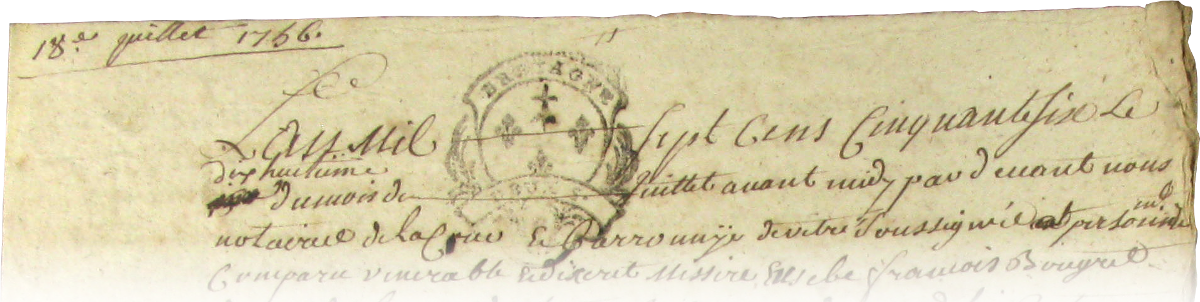 18.e juillet 1756.
BRETAGNE
L'an Mil Sept Cens Cinquante Six Le
dix huitieme
du mois de Juillet avant midy par devant nous
notaires de la Cour & Barronnye de vitré Soussignés
Comparu venerable & discret Missire François